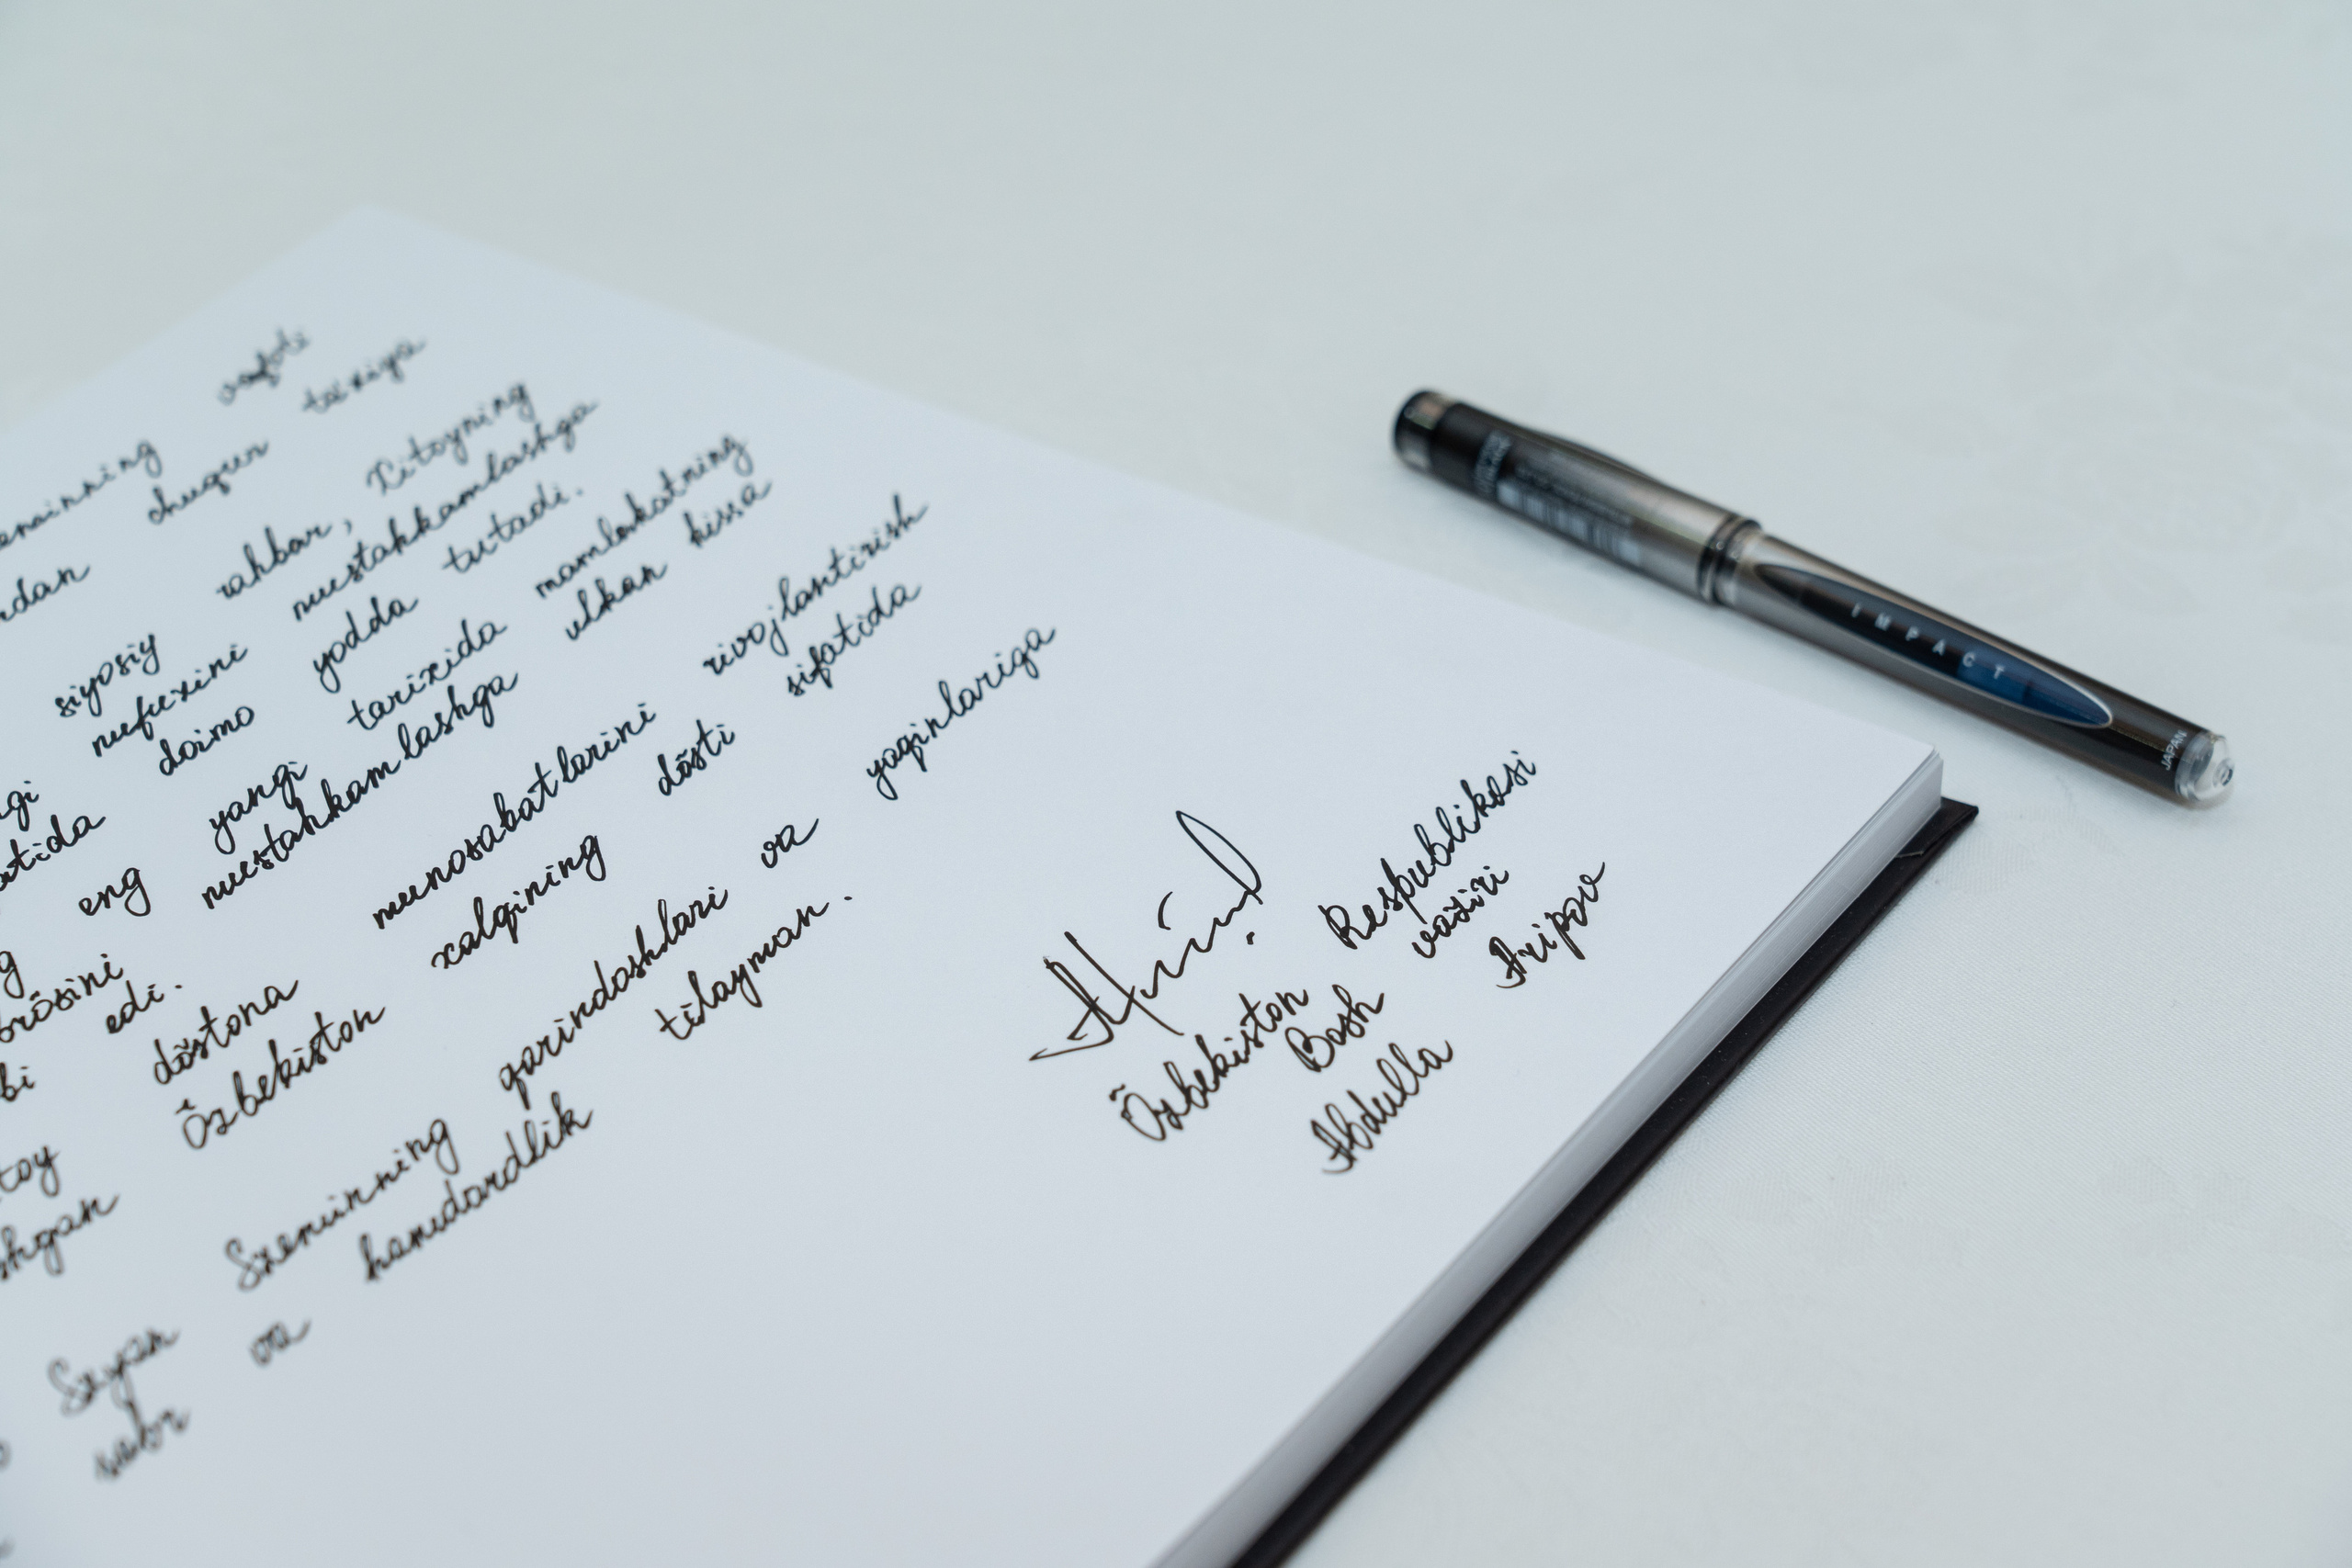 vafoti
chuqur ta'ziya
siyosiy rahbar, Xitoyning
nufuzini mustahkamlashga
doimo yodda tutadi.
eng yangi tarixida mamlakatning
mustahkamlashga ulkan hissa
edi.
dõstona munosabatlarini rivojlantirish
Õzbekiston xalqining dõsti sifatida
Szyan Szeminning qarindoshlari va yaqinlariga
sabr va hamdardlik tilayman.
Õzbekiston Respublikasi
Bosh vaziri
Abdulla Aripov
IMPACT
JAPAN